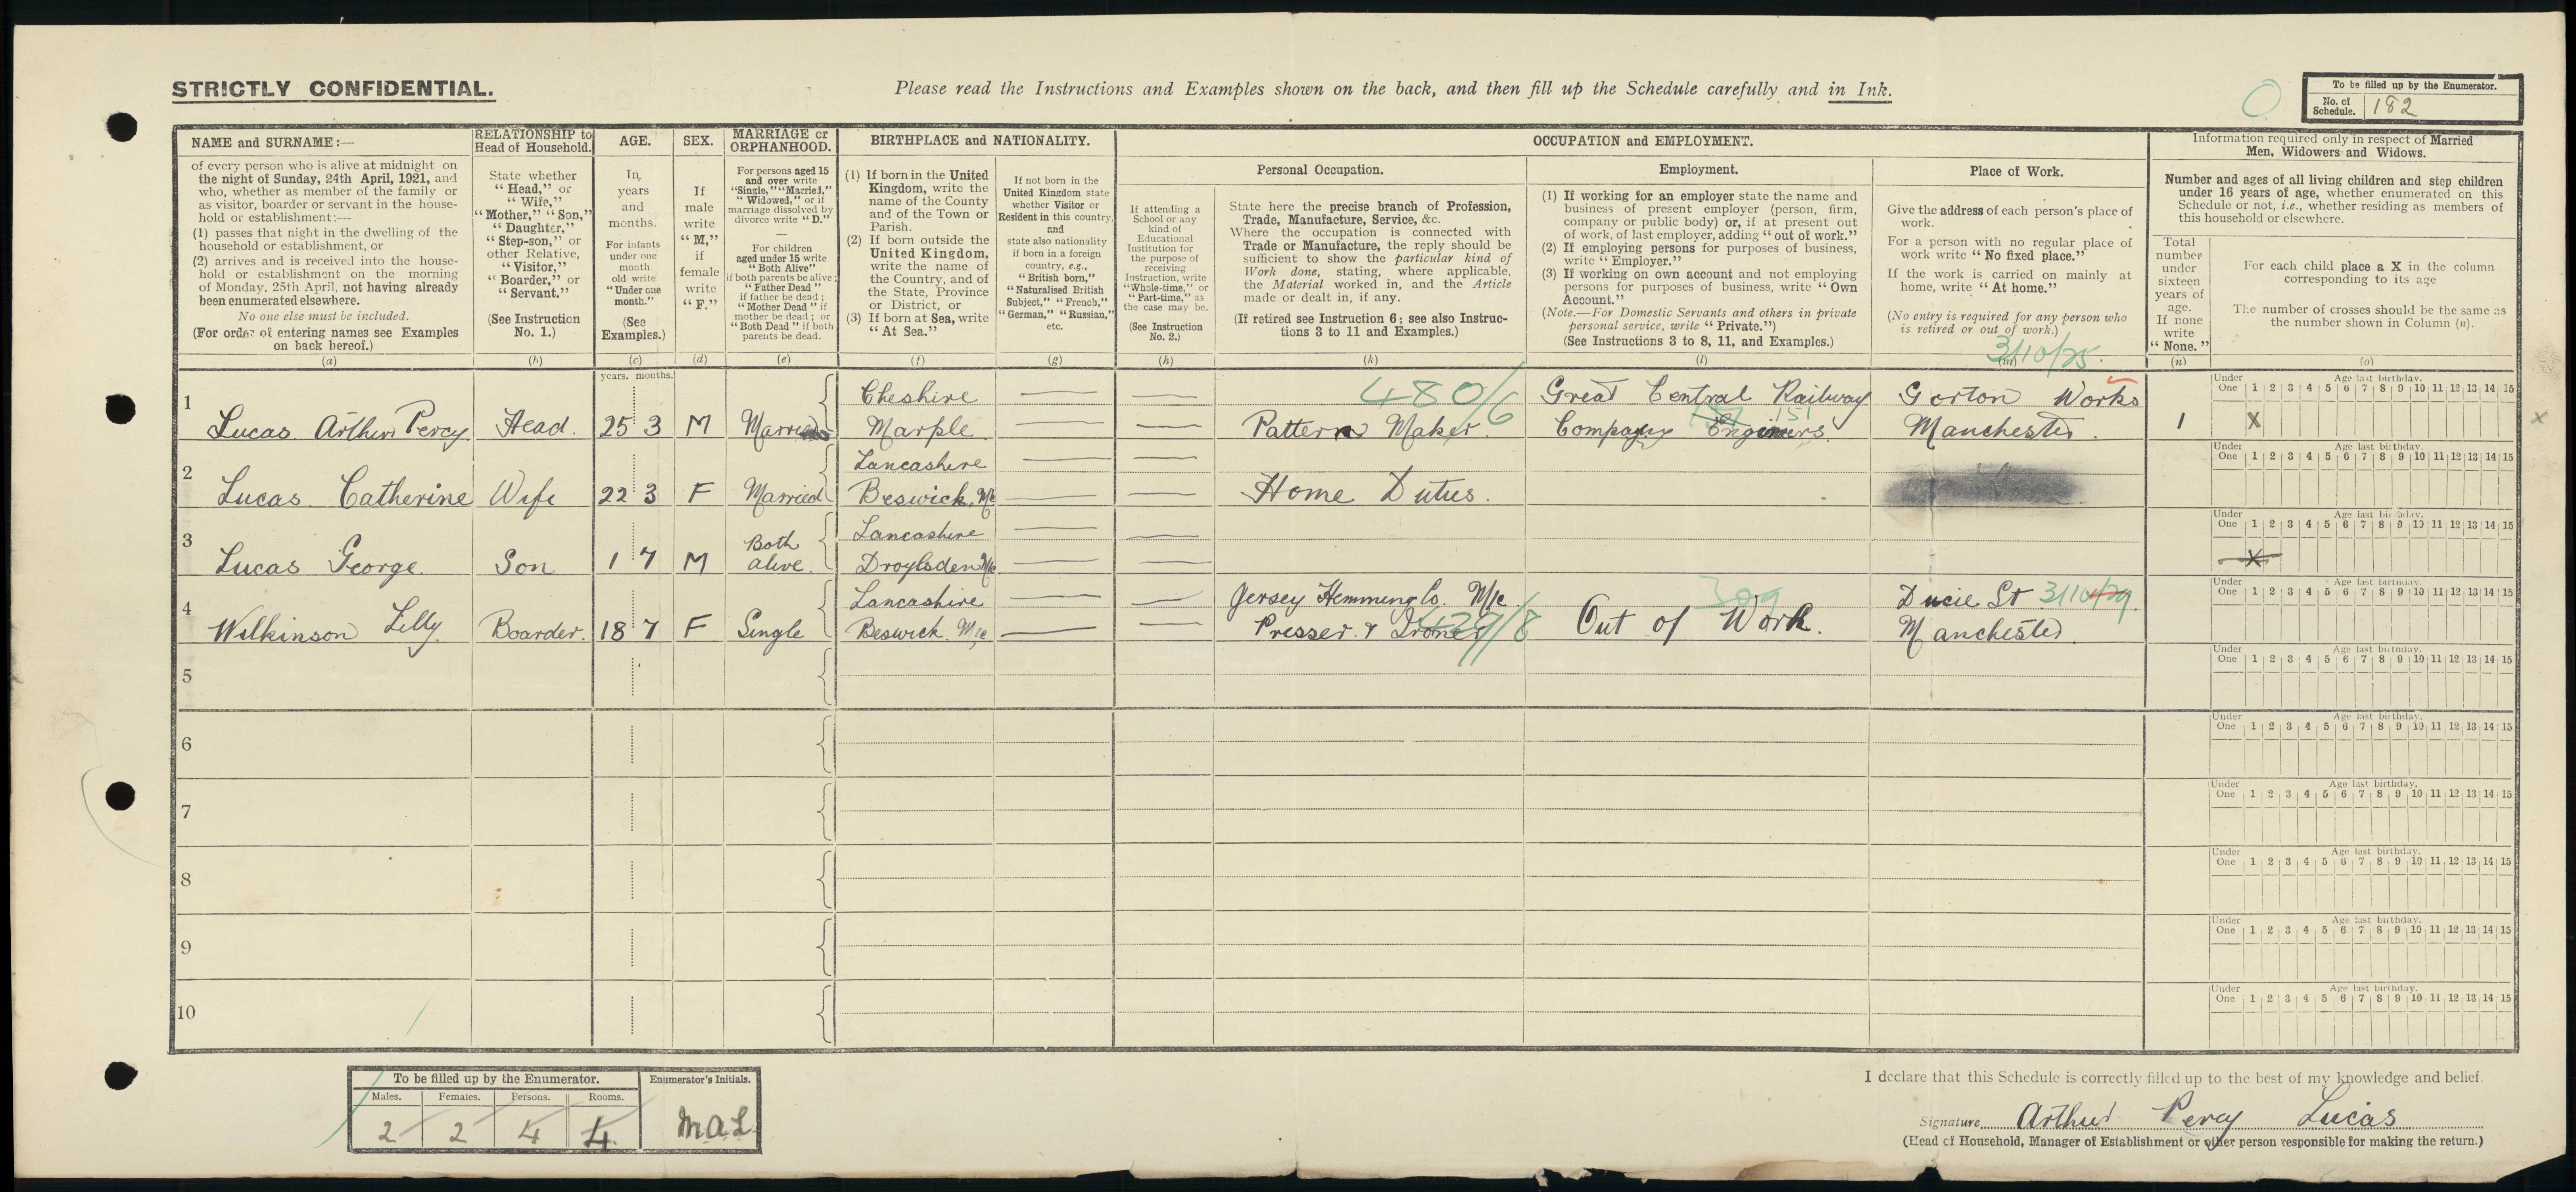 STRICTLY CONFIDENTIAL.
Please read the Instructions and Examples shown on the back, and then fill up the Schedule carefully and in Ink.
To be filled up by the Enumerator.
No. of Schedule. 182
NAME and SURNAME:—
of every person who is alive at midnight on
the night of Sunday, 24th April, 1921, and
who, whether as member of the family or
as visitor, boarder or servant in the house-
hold or establishment:—
(1) passes that night in the dwelling of the
household or establishment, or
(2) arrives and is received into the house-
hold or establishment on the morning
of Monday, 25th April, not having already
been enumerated elsewhere.
No one else must be included.
(For order of entering names see Examples
on back hereof.)
(a)
RELATIONSHIP to
Head of Household.
State whether
"Head," or
"Wife,"
"Mother," "Son,"
"Daughter,"
"Step-son," or
other Relative,
"Visitor,"
"Boarder," or
"Servant."
(See Instruction
No. 1.)
(b)
AGE.
In
years
and
months.
For infants
under one
month
old write
"Under one
month."
(See
Examples.)
(c)
SEX.
If
male
write
"M,"
if
female
write
"F."
(d)
MARRIAGE or
ORPHANHOOD.
For persons aged 15
and over write
"Single," "Married,"
"Widowed," or if
marriage dissolved by
divorce write "D."
—
For children
aged under 15 write
"Both Alive"
if both parents be alive;
"Father Dead"
if father be dead;
"Mother Dead" if
mother be dead; or
"Both Dead" if both
parents be dead.
(e)
BIRTHPLACE and NATIONALITY.
(1) If born in the United
Kingdom, write the
name of the County
and of the Town or
Parish.
(2) If born outside the
United Kingdom,
write the name of
the Country, and of
the State, Province
or District, or
(3) If born at Sea, write
"At Sea."
(f)
If not born in the
United Kingdom state
whether Visitor or
Resident in this country,
and
state also nationality
if born in a foreign
country, e.g.,
"British born,"
"Naturalised British
Subject," "French,"
"German," "Russian,"
etc.
(g)
OCCUPATION and EMPLOYMENT.
Personal Occupation.
If attending a
School or any
kind of
Educational
Institution for
the purpose of
receiving
Instruction, write
"Whole-time," or
"Part-time," as
the case may be.
(See Instruction
No. 2.)
(h)
State here the precise branch of Profession,
Trade, Manufacture, Service, &c.
Where the occupation is connected with
Trade or Manufacture, the reply should be
sufficient to show the particular kind of
Work done, stating, where applicable,
the Material worked in, and the Article
made or dealt in, if any.
(If retired see Instruction 6; see also Instruc-
tions 3 to 11 and Examples.)
(k)
Employment.
(1) If working for an employer state the name and
business of present employer (person, firm,
company or public body) or, if at present out
of work, of last employer, adding "out of work."
(2) If employing persons for purposes of business,
write "Employer."
(3) If working on own account and not employing
persons for purposes of business, write "Own
Account."
(Note.—For Domestic Servants and others in private
personal service, write "Private.")
(See Instructions 3 to 8, 11, and Examples.)
(l)
Place of Work.
Give the address of each person's place of
work.
For a person with no regular place of
work write "No fixed place."
If the work is carried on mainly at
home, write "At home."
(No entry is required for any person who
is retired or out of work.)
(m)
3/10/25.
Information required only in respect of Married
Men, Widowers and Widows.
Number and ages of all living children and step children
under 16 years of age, whether enumerated on this
Schedule or not, i.e., whether residing as members of
this household or elsewhere.
Total
number
under
sixteen
years of
age.
If none
write
"None."
(n)
For each child place a X in the column
corresponding to its age
The number of crosses should be the same as
the number shown in Column (n).
(o)
years. months.
1
Lucas Arthur Percy Head. 25 3 M Married
Cheshire
Marple
480/6
Pattern Maker.
Great Central Railway
Company Engineers.
151
Gorton Works
Manchester.
1 X
Under One Age last birthday. 1 2 3 4 5 6 7 8 9 10 11 12 13 14 15
2
Lucas Catherine Wife 22 3 F Married
Lancashire
Beswick. M/c
Home Duties.
Under One Age last birthday. 1 2 3 4 5 6 7 8 9 10 11 12 13 14 15
3
Lucas George Son 1 7 M Both alive.
Lancashire
Droylsden M/c
Under One Age last birthday. 1 2 3 4 5 6 7 8 9 10 11 12 13 14 15
X
4
Wilkinson Lilly Boarder. 18 7 F Single
Lancashire
Beswick. M/c
Jersey Hemming Co. M/c
Presser & Ironer
Out of Work.
309
Ducie St
Manchester.
Under One Age last birthday. 1 2 3 4 5 6 7 8 9 10 11 12 13 14 15
5
Under One Age last birthday. 1 2 3 4 5 6 7 8 9 10 11 12 13 14 15
6
Under One Age last birthday. 1 2 3 4 5 6 7 8 9 10 11 12 13 14 15
7
Under One Age last birthday. 1 2 3 4 5 6 7 8 9 10 11 12 13 14 15
8
Under One Age last birthday. 1 2 3 4 5 6 7 8 9 10 11 12 13 14 15
9
Under One Age last birthday. 1 2 3 4 5 6 7 8 9 10 11 12 13 14 15
10
Under One Age last birthday. 1 2 3 4 5 6 7 8 9 10 11 12 13 14 15
To be filled up by the Enumerator.
Males. Females. Persons. Rooms.
2 2 4 4
Enumerator's Initials.
M.A.L.
I declare that this Schedule is correctly filled up to the best of my knowledge and belief.
Signature Arthur Percy Lucas
(Head of Household, Manager of Establishment or other person responsible for making the return.)